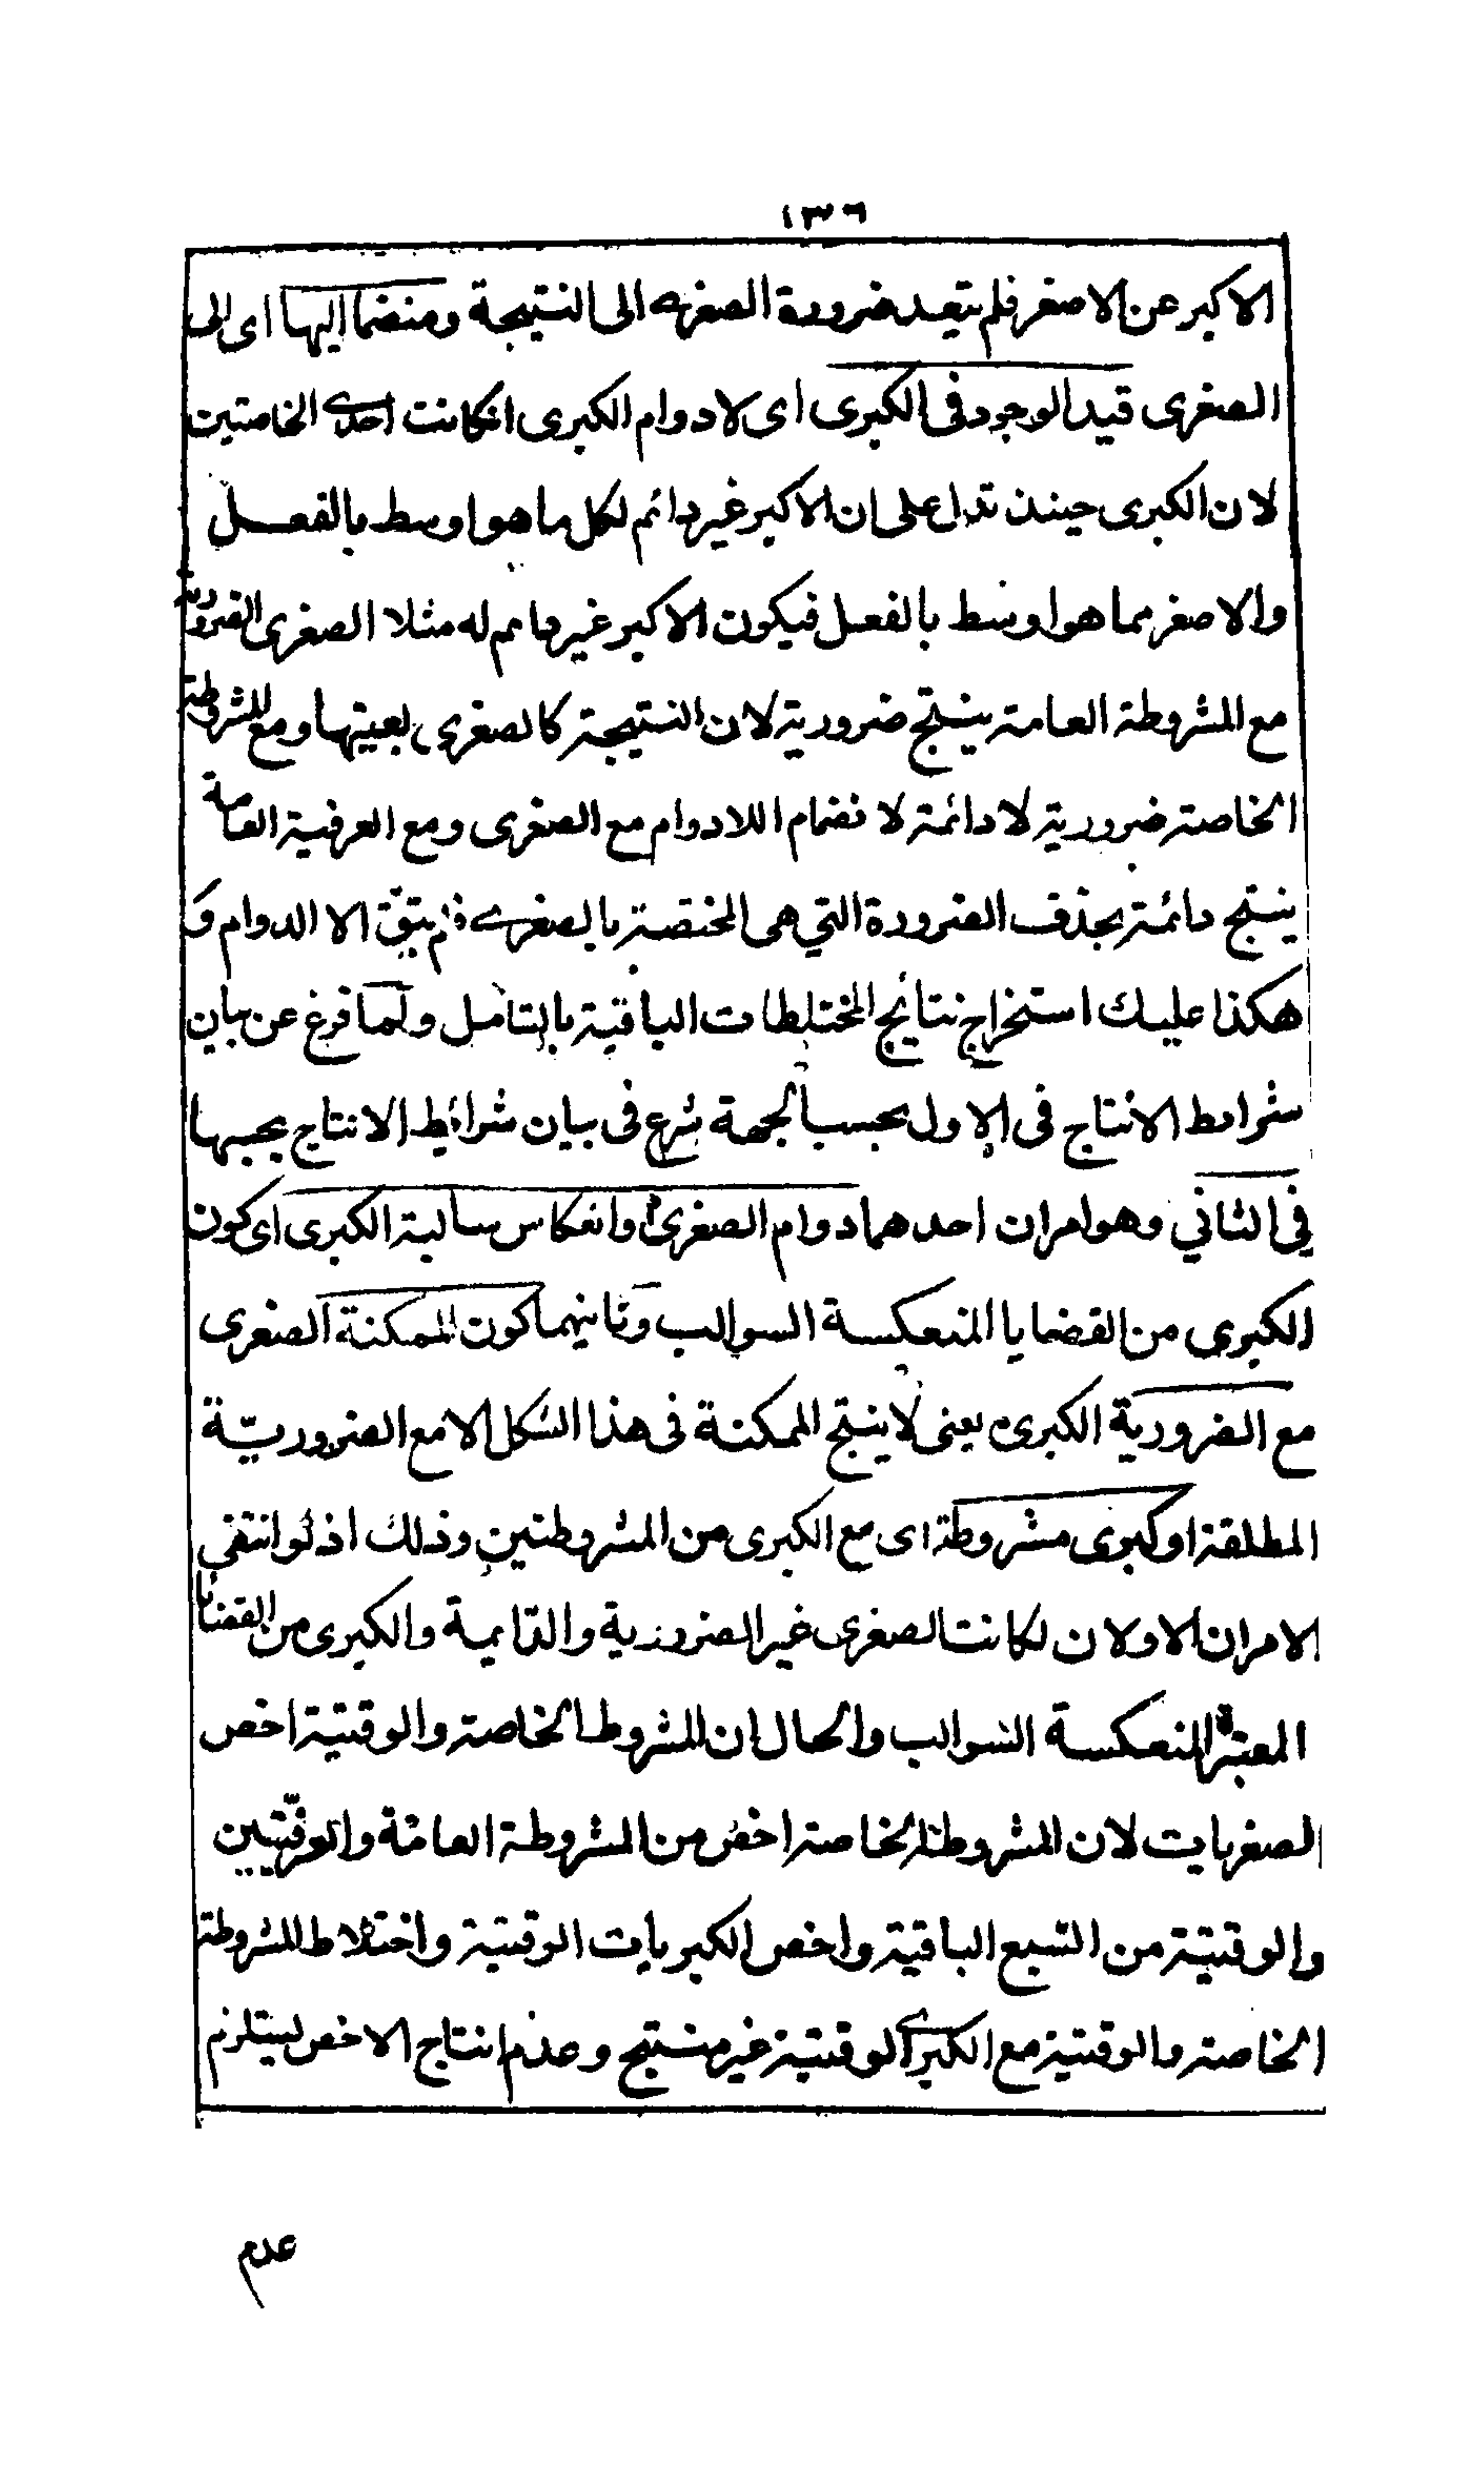 ١٣٦
الاكبر عن الاصغر فلم يتعد ضرورة الصغرى الى النتيجة ومنضما اليها اى الى
الصغرى قيد الوجود فى الكبرى اى لا دوام الكبرى انكانت احدى الخاصتين
لان الكبرى حينئذ تدل على ان الاكبر غير دائم لكل ما هو اوسط بالفعل
والاصغر مما هو اوسط بالفعل فيكون الاكبر غير دائم له مثلا الصغرى الضرورية
مع المشروطة العامة ينتج ضرورية لان النتيجة كالصغرى بعينها ومع المشروطة
الخاصة ضرورية لا دائمة لانضمام اللادوام مع الصغرى ومع العرفية العامة
ينتج دائمة بحذف الضرورة التي هى المختصة بالصغرى فلم يتبق الا الدوام و
هكذا عليك استخراج نتائج المختلطات الباقية بالتامل ولما فرغ عن بيان
شرائط الانتاج فى الاول بحسب الجهة شرع فى بيان شرائط الانتاج بحبسها
في الثاني وهو امران احدهما دوام الصغرى وانعكاس سالبة الكبرى اى كون
الكبرى من القضايا المنعكسة السوالب وثانيهما كون الممكنة الصغرى
مع الضرورية الكبرى يعنى لا ينتج الممكنة فى هذا الشكل الا مع الضروريّة
المطلقة او كبرى مشروطة اى مع الكبرى من المشروطتين وذلك اذ لو انتفى
الامران الاولان لكانت الصغرى غير الضرورية والدّايمة والكبرى من القضايا
المعتبرة المنعكسة السوالب والحال ان المشروط الخاصة والوقتية اخص
الصغريات لان المشروطة الخاصة اخص من المشروطة العامّة والعرفيّتين
والوقتية من التسع الباقية واخص الكبريات الوقتية واختلاط المشروطة
الخاصة والوقتية مع الكبرى الوقتية غير منتج وعدم انتاج الاخص يستلزم
عدم